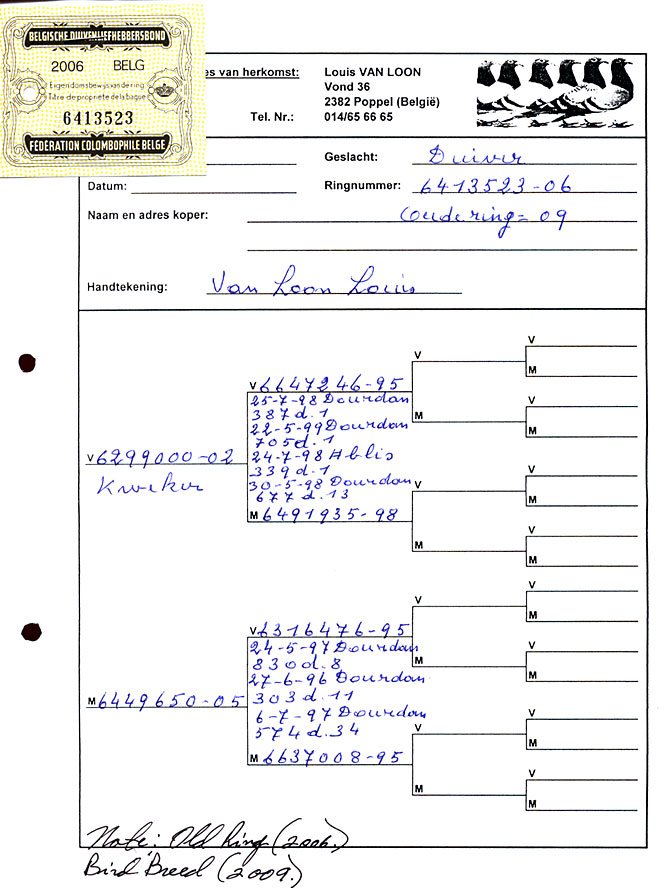 BELGISCHE DUIVENLIEFHEBBERSBOND
2006 BELG
Eigendomsbewijs van der ring
Titre de propriete de la bague
6413523
FÉDÉRATION COLOMBOPHILE BELGE
es van herkomst:
Louis VAN LOON
Vond 36
2382 Poppel (België)
Tel. Nr.: 014/65 66 65
Geslacht: Duiver
Datum:
Ringnummer: 6413523-06
Naam en adres koper:
Oude ring = 09
Handtekening: Van Loon Louis
V 6299000-02
Kweker
V 6647246-95
25-7-98 Dourdan
387 d. 1
22-5-99 Dourdan
705 d. 1
24-7-98 Ablis
339 d. 1
30-5-98 Dourdan
677 d. 13
M 6491935-98
V
M
V
M
V
M
V
M
V
M
V
M
M 6449650-05
V 6316476-95
24-5-97 Dourdan
830 d. 8
27-6-96 Dourdan
303 d. 11
6-7-97 Dourdan
574 d. 34
M 6637008-95
V
M
V
M
V
M
V
M
V
M
V
M
Note: Old Ring (2006.)
Bird Breed (2009.)